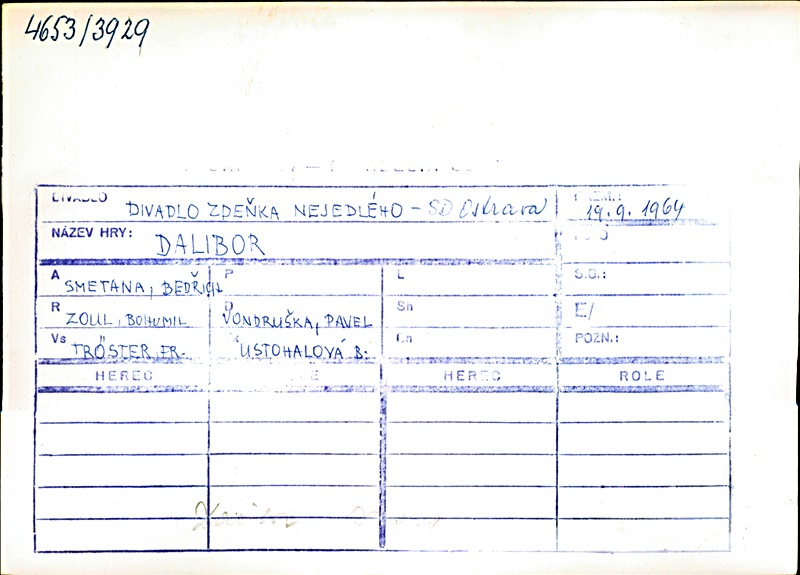 4653/3929
DIVADLO DIVADLO ZDEŇKA NEJEDLÉHO - SD Ostrava 19.9.1964
NÁZEV HRY: DALIBOR
A SMETANA, BEDŘICH P L S.G.:
R ZOUL, BOHUMIL D VONDRUŠKA, PAVEL Sn E/
Vs TRÖSTER, FR. USTOHALOVÁ B. Cn POZN.:
HEREC HEREC ROLE